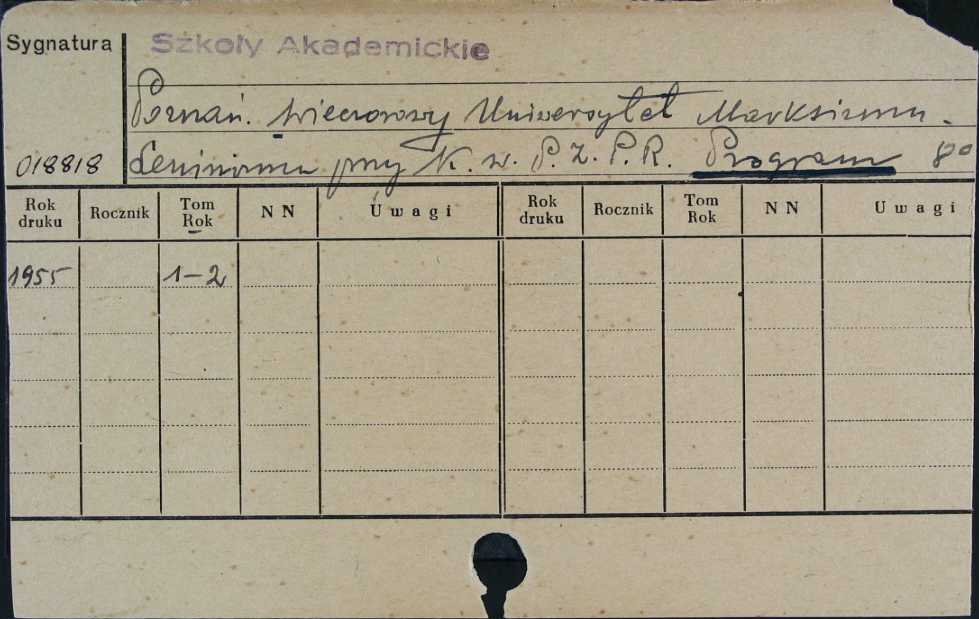 Sygnatura
Szkoły Akademickie
Poznań. Wieczorowy Uniwersytet Marksizmu-
018818 Leninizmu przy K. W. P. Z. P. R. Program 8°
Rok druku Rocznik Tom Rok N N Uwagi Rok druku Rocznik Tom Rok N N Uwagi
1955 1-2